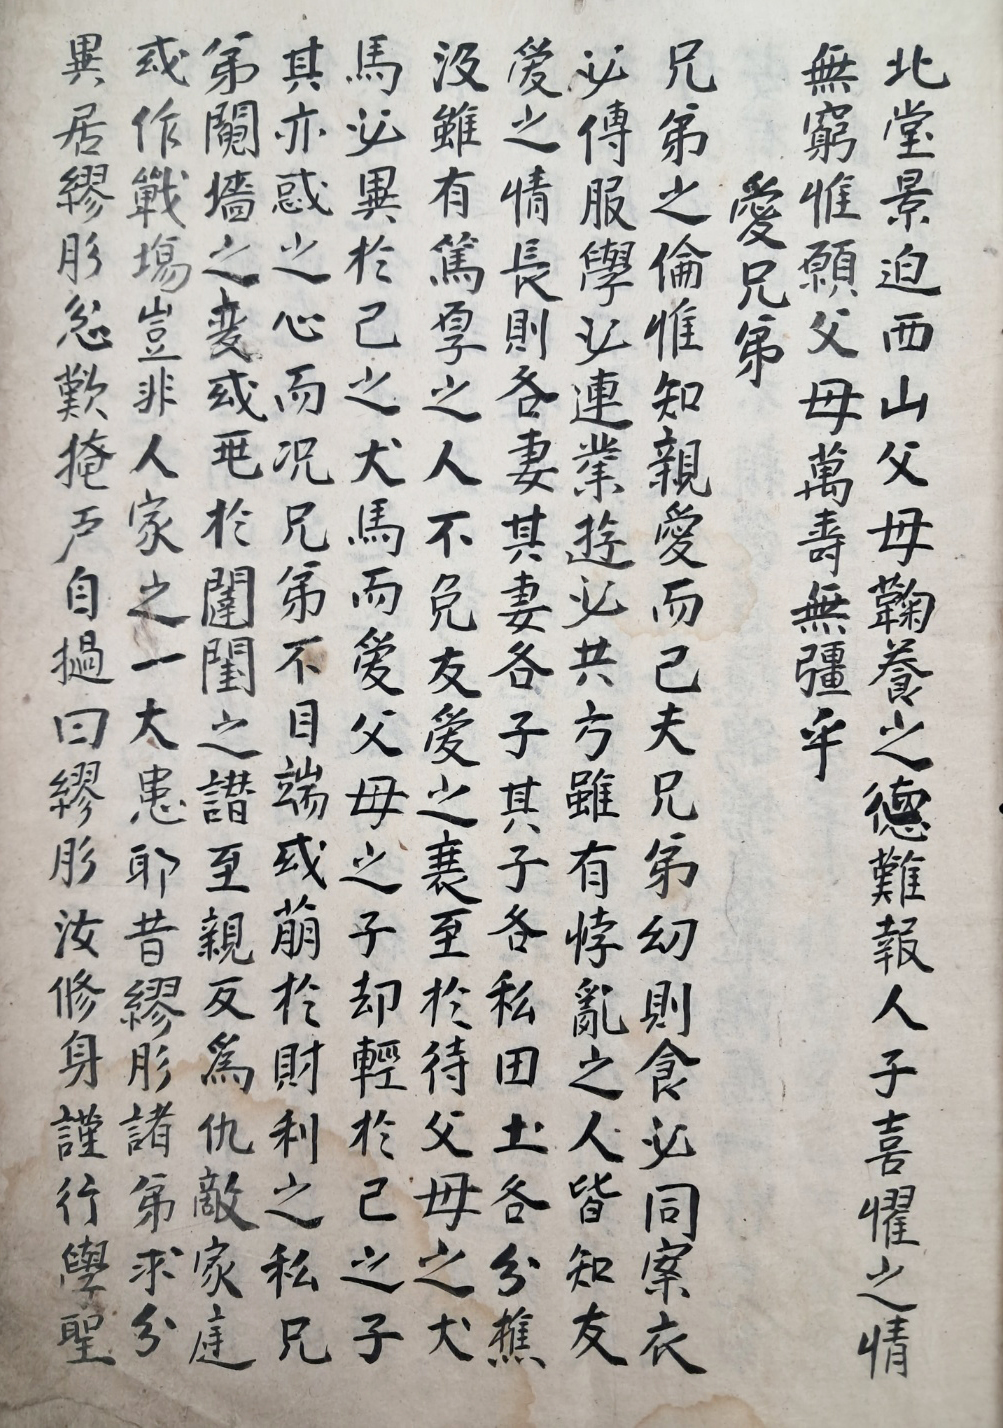 北堂景迫西山父母鞠養之德難報人子喜懼之情
無窮惟願父母萬壽無疆乎
愛兄弟
兄弟之倫惟知親愛而已夫兄弟幼則食必同案衣
必傳服學必連業遊必共方雖有悖亂之人皆知友
愛之情長則各妻其妻各子其子各私田土各分樵
汲雖有篤厚之人不免友愛之衰至於待父母之犬
馬必異於己之犬馬而愛父母之子却輕於己之子
其亦惑之心而况兄弟不目端或萠於財利之私兄
弟䦧墻之変或起於閨閫之譖至親反爲仇敵家庭
或作戰塲豈非人家之一大患耶昔繆肜諸弟求分
異居繆肜忿歎掩戶自撾曰繆肜汝修身謹行學聖